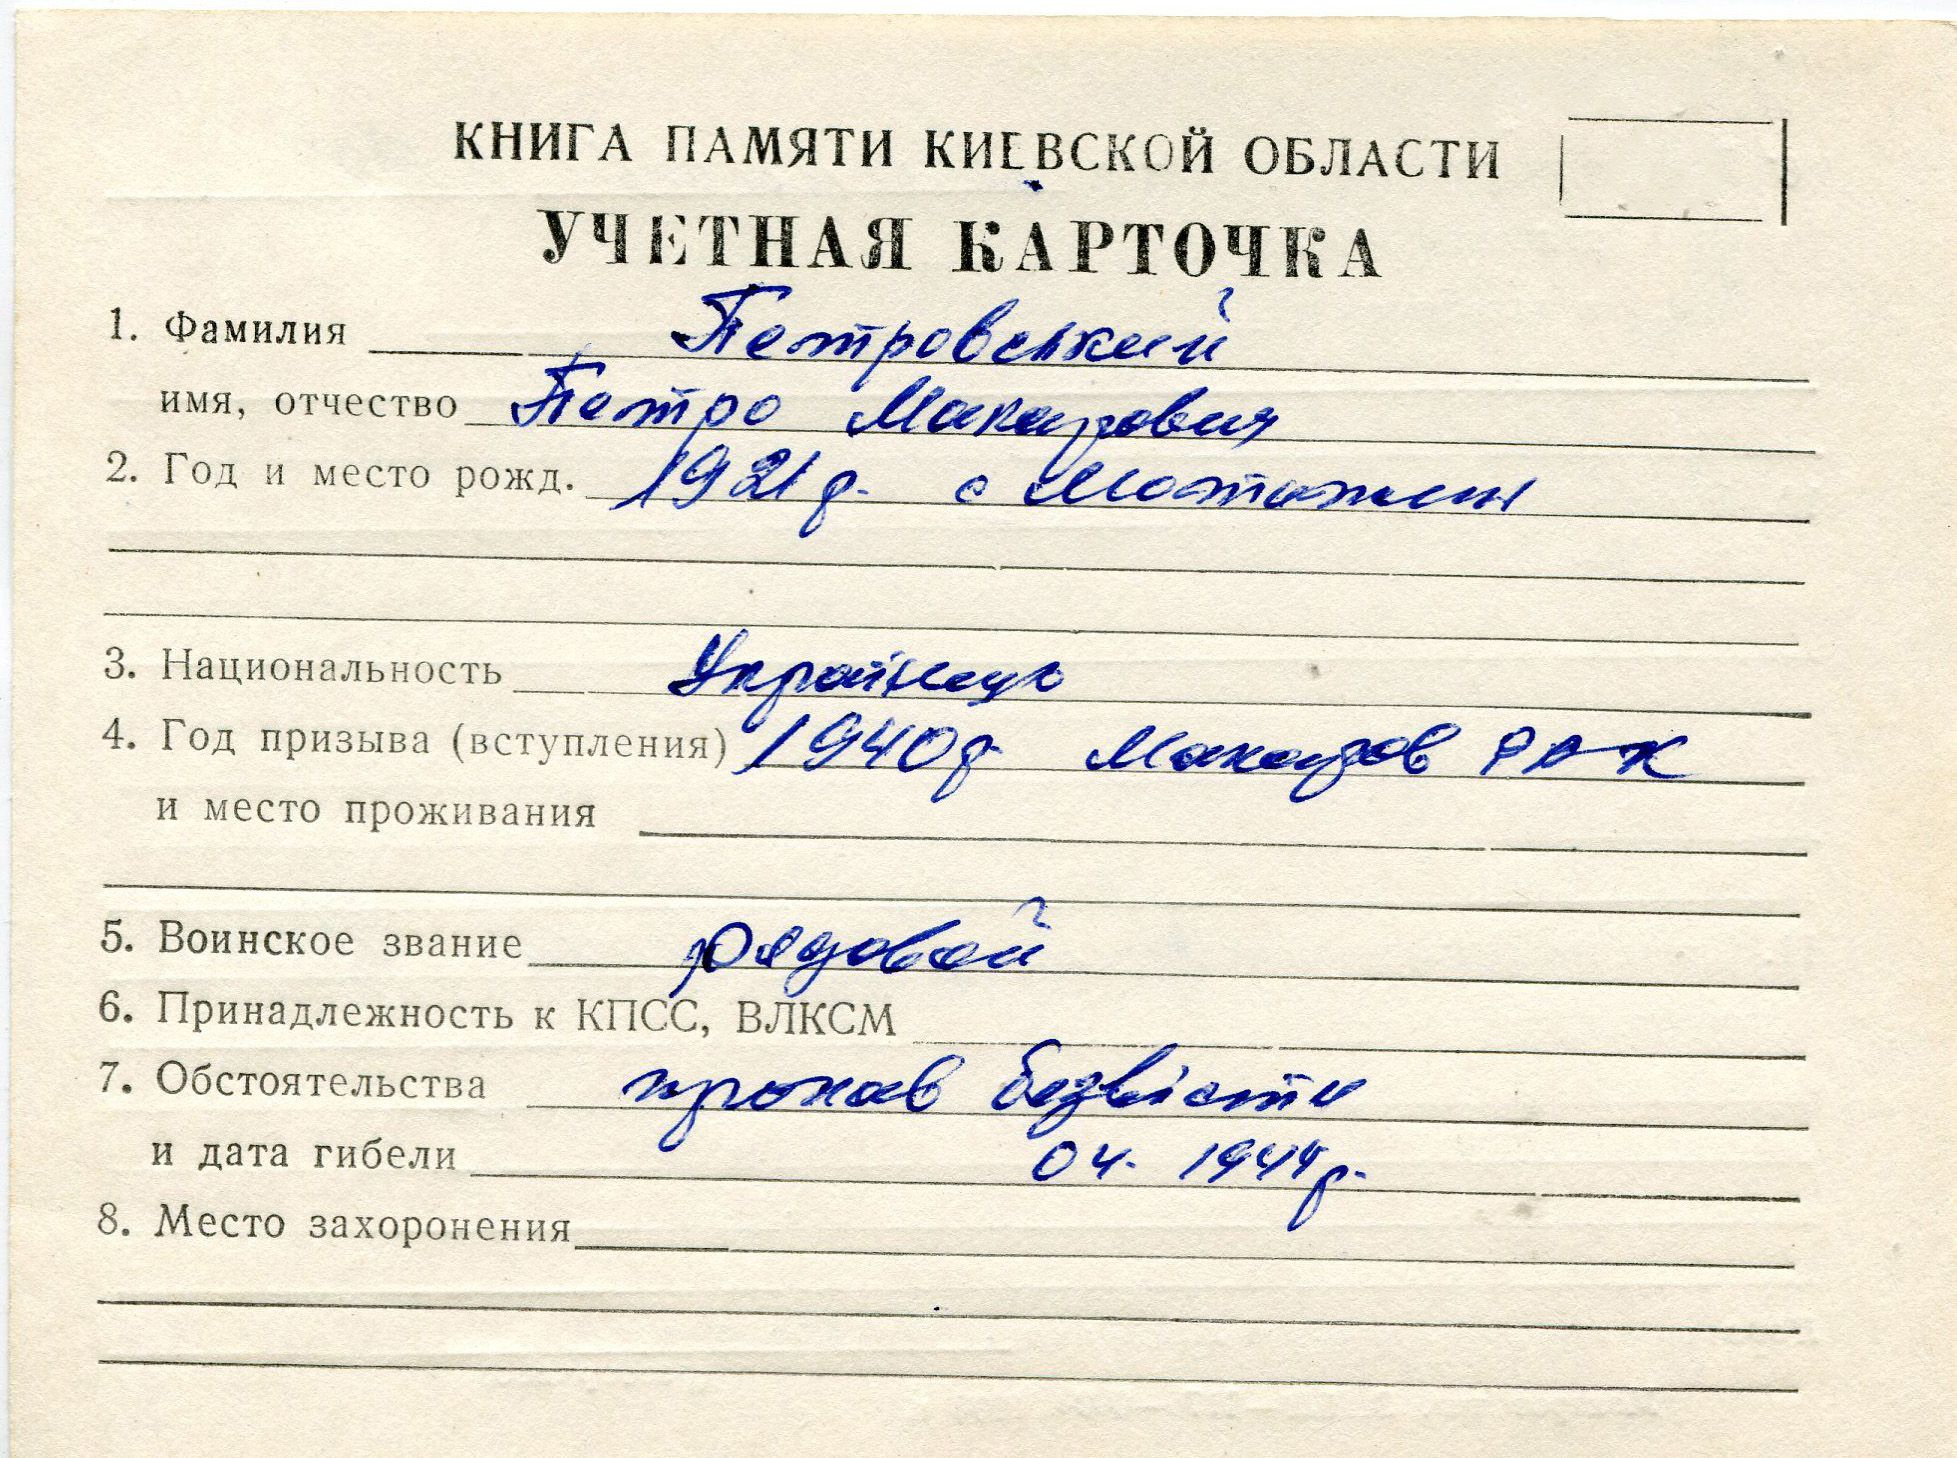 КНИГА ПАМЯТИ КИЕВСКОЙ ОБЛАСТИ
УЧЕТНАЯ КАРТОЧКА
1. Фамилия Петровський
имя, отчество Петро Макарович
2. Год и место рожд. 1921 р. с Мотижин
3. Национальность Українець
4. Год призыва (вступления) 1940 р Макаров РВК
и место проживания
5. Воинское звание рядовой
6. Принадлежность к КПСС, ВЛКСМ
7. Обстоятельства пропав безвісти
и дата гибели 04. 1944 р.
8. Место захоронения